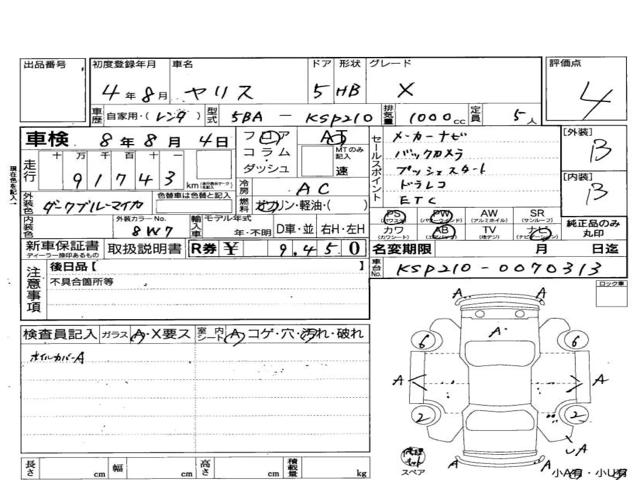 出品番号
初度登録年月
4年8月
車名
ヤリス
ドア
5
形状
HB
グレード
X
評価点
4
車歴
自家用・(レンタ)
型式
5BA - KSP210
排気量
1000cc
定員
5人
車検 8年8月4日
フロア
コラム・
ダッシュ
AT
MTのみ記入
速
走行
十万千百十一
91743
km
冷房
AC
外装色
色替車は色替と記入
ダークブルーマイカ
燃料
ガソリン・軽油・( )
内装色
外装カラーNo.
8W7
輸入車
モデル年式
年・不明
D車・並
右H・左H
セールスポイント
メーカーナビ
バックカメラ
プッシュスタート
ドラレコ
ETC
[外装]
B
[内装]
B
PS(パワステ) PW(パワーウィンド) AW(アルミホイル) SR(サンルーフ)
カワ(カワシート) AB(エアバッグ) TV(地デジ) ナビ
純正品のみ
丸印
新車保証書
ディーラー捺印あるもの
取扱説明書
R券 ¥ 9,450
名変期限 月 日迄
車台No.
KSP210-0070313
注意事項
後日品【 】
不具合箇所等
ロック車
検査員記入
ガラス A・X要ス
室内シート A コゲ・穴・汚れ・破れ
ホイルカバーA
A A
A
6 6
A A
2 2
A
A A
修理キット
スペア
小A有・小U有
現在色を記入→
長さ cm 幅 cm 高さ cm 積載量 kg